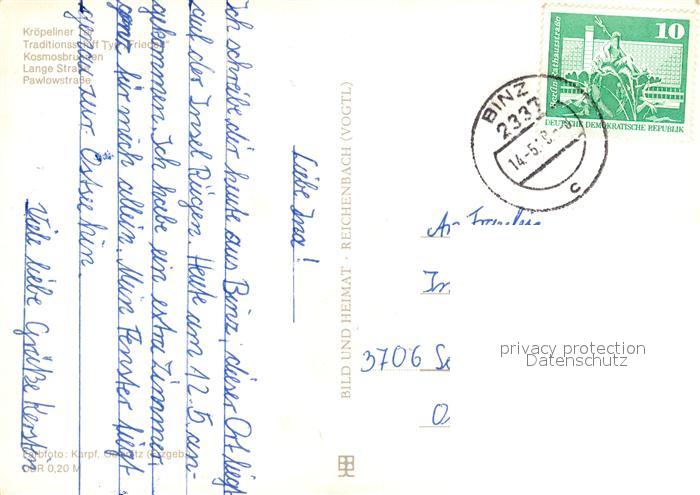 Kröpeliner
Traditionsschiff Typ "Frieden"
Kosmosbrunnen
Lange Straße
Pawlowstraße
Liebe Ina!
Ich schreibe dir heute aus Binz, dieser Ort liegt
auf der Insel Rügen. Heute am 12.5. an-
gekommen. Ich habe ein extra Zimmer,
ganz für mich allein. Mein Fenster liegt
genau zur Ostsee hin.
Viele liebe Grüße Kerstin
Farbfoto: Karpf, (Erzgeb.)
DDR 0,20 M
BILD UND HEIMAT · REICHENBACH (VOGTL)
10
Berlin, Rathausstraße
DEUTSCHE DEMOKRATISCHE REPUBLIK
BINZ
2337
14.-5.
c
In
3706 Se
O
privacy protection
Datenschutz